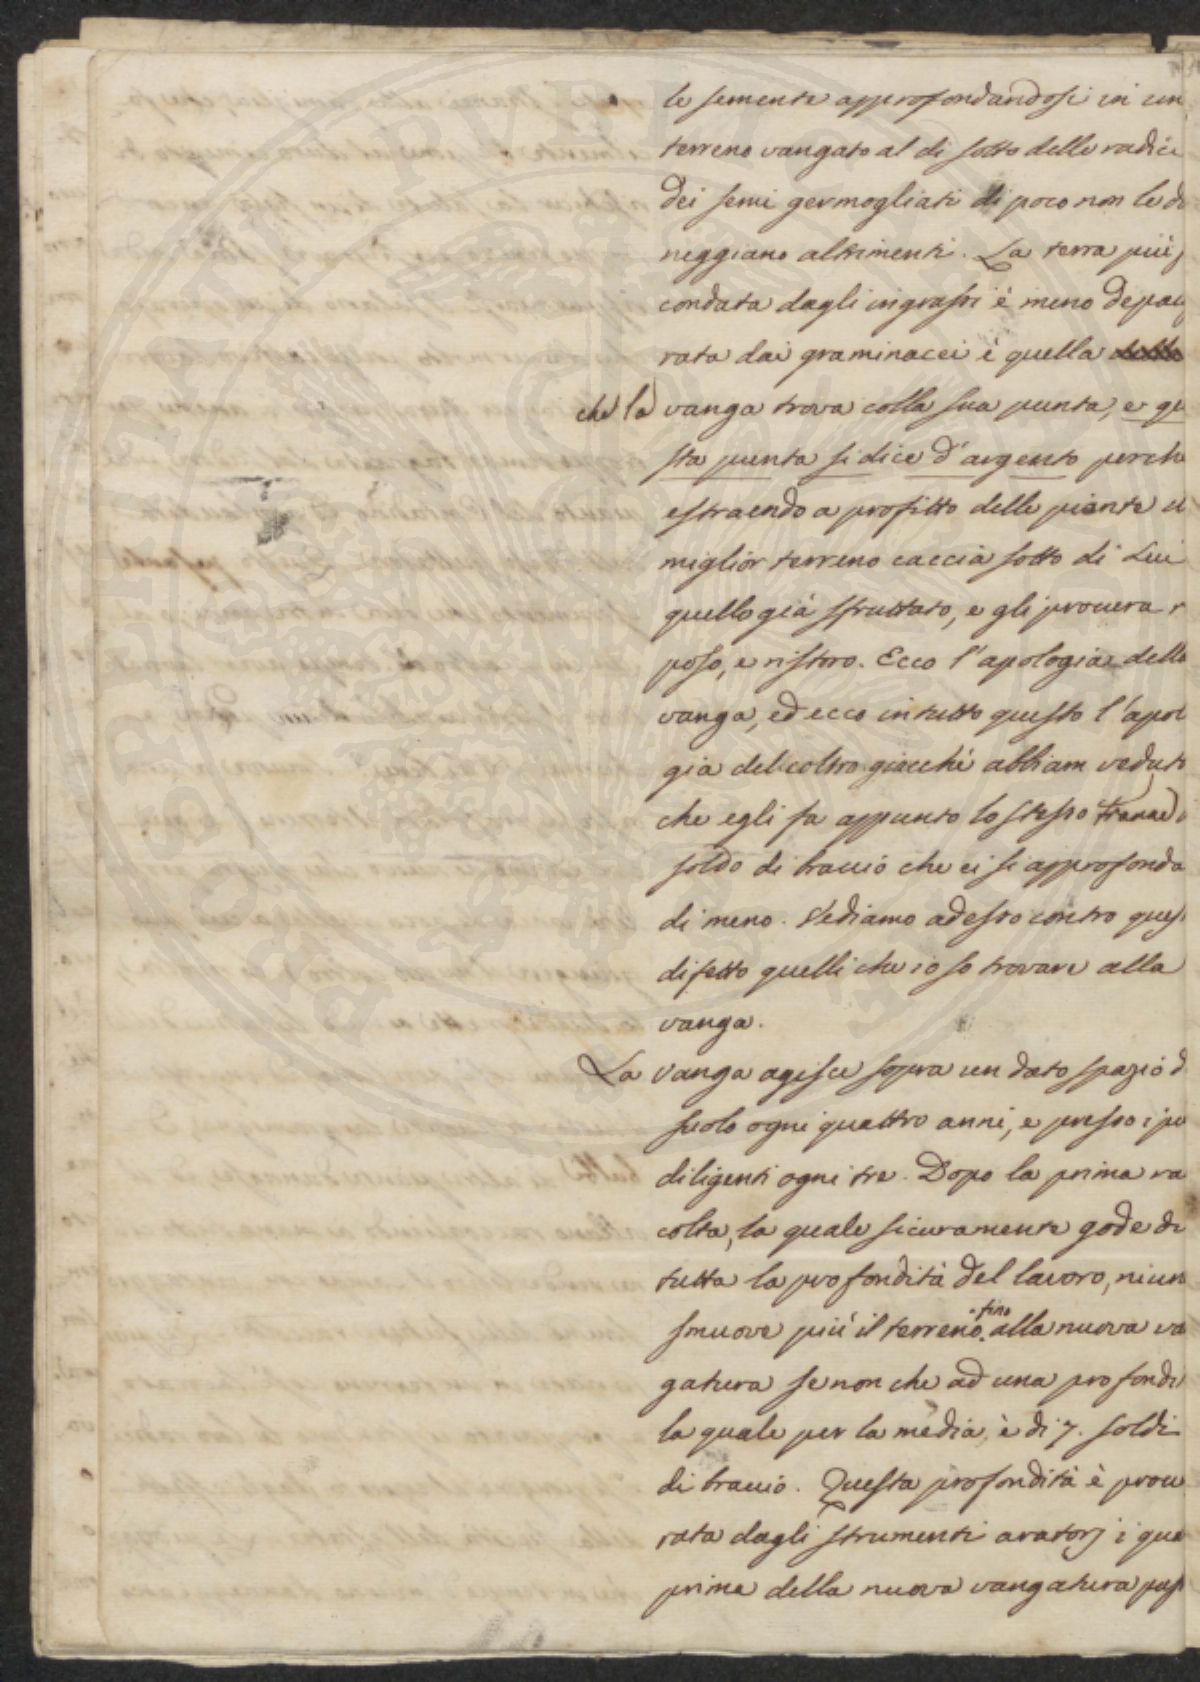 le sementa approfondandosi in un
terreno vangato al di sotto delle radici
dei semi germogliati di poco non le da
neggiano altrimenti. La terra più f
condata dagli ingrassi è meno depau
rata dai graminacei è quella
che la vanga trova colla sua punta, e qu
sta punta si dice d'argento perch
estraendo a profitto delle piante il
miglior terreno caccia sotto di Lui
quello già sfruttato, e gli provera r
poso, e ristoro. Ecco l'apologia della
vanga, ed ecco in tutto questo l'apol
gia del coltro giacchè abbiam veduto
che egli fa appunto lo stesso tranne
soldo di braccio che ei si approfonda
di meno. Vediamo adesso contro ques
difetto quelli che io so trovare alla
vanga.
La vanga agisce sopra un dato spazio d
suolo ogni quattro anni, e presso i piu
diligenti ogni tre. Dopo la prima ra
colta, la quale sicuramente gode di
tutta la profondità del lavoro, niun
smuove più il terreno fino alla nuova va
gatura se non che ad una profondi
la quale per la media, è di 7. soldi
di braccio. Questa profondità è procu
rata dagli strumenti aratorj i qua
prima della nuova vangatura pass